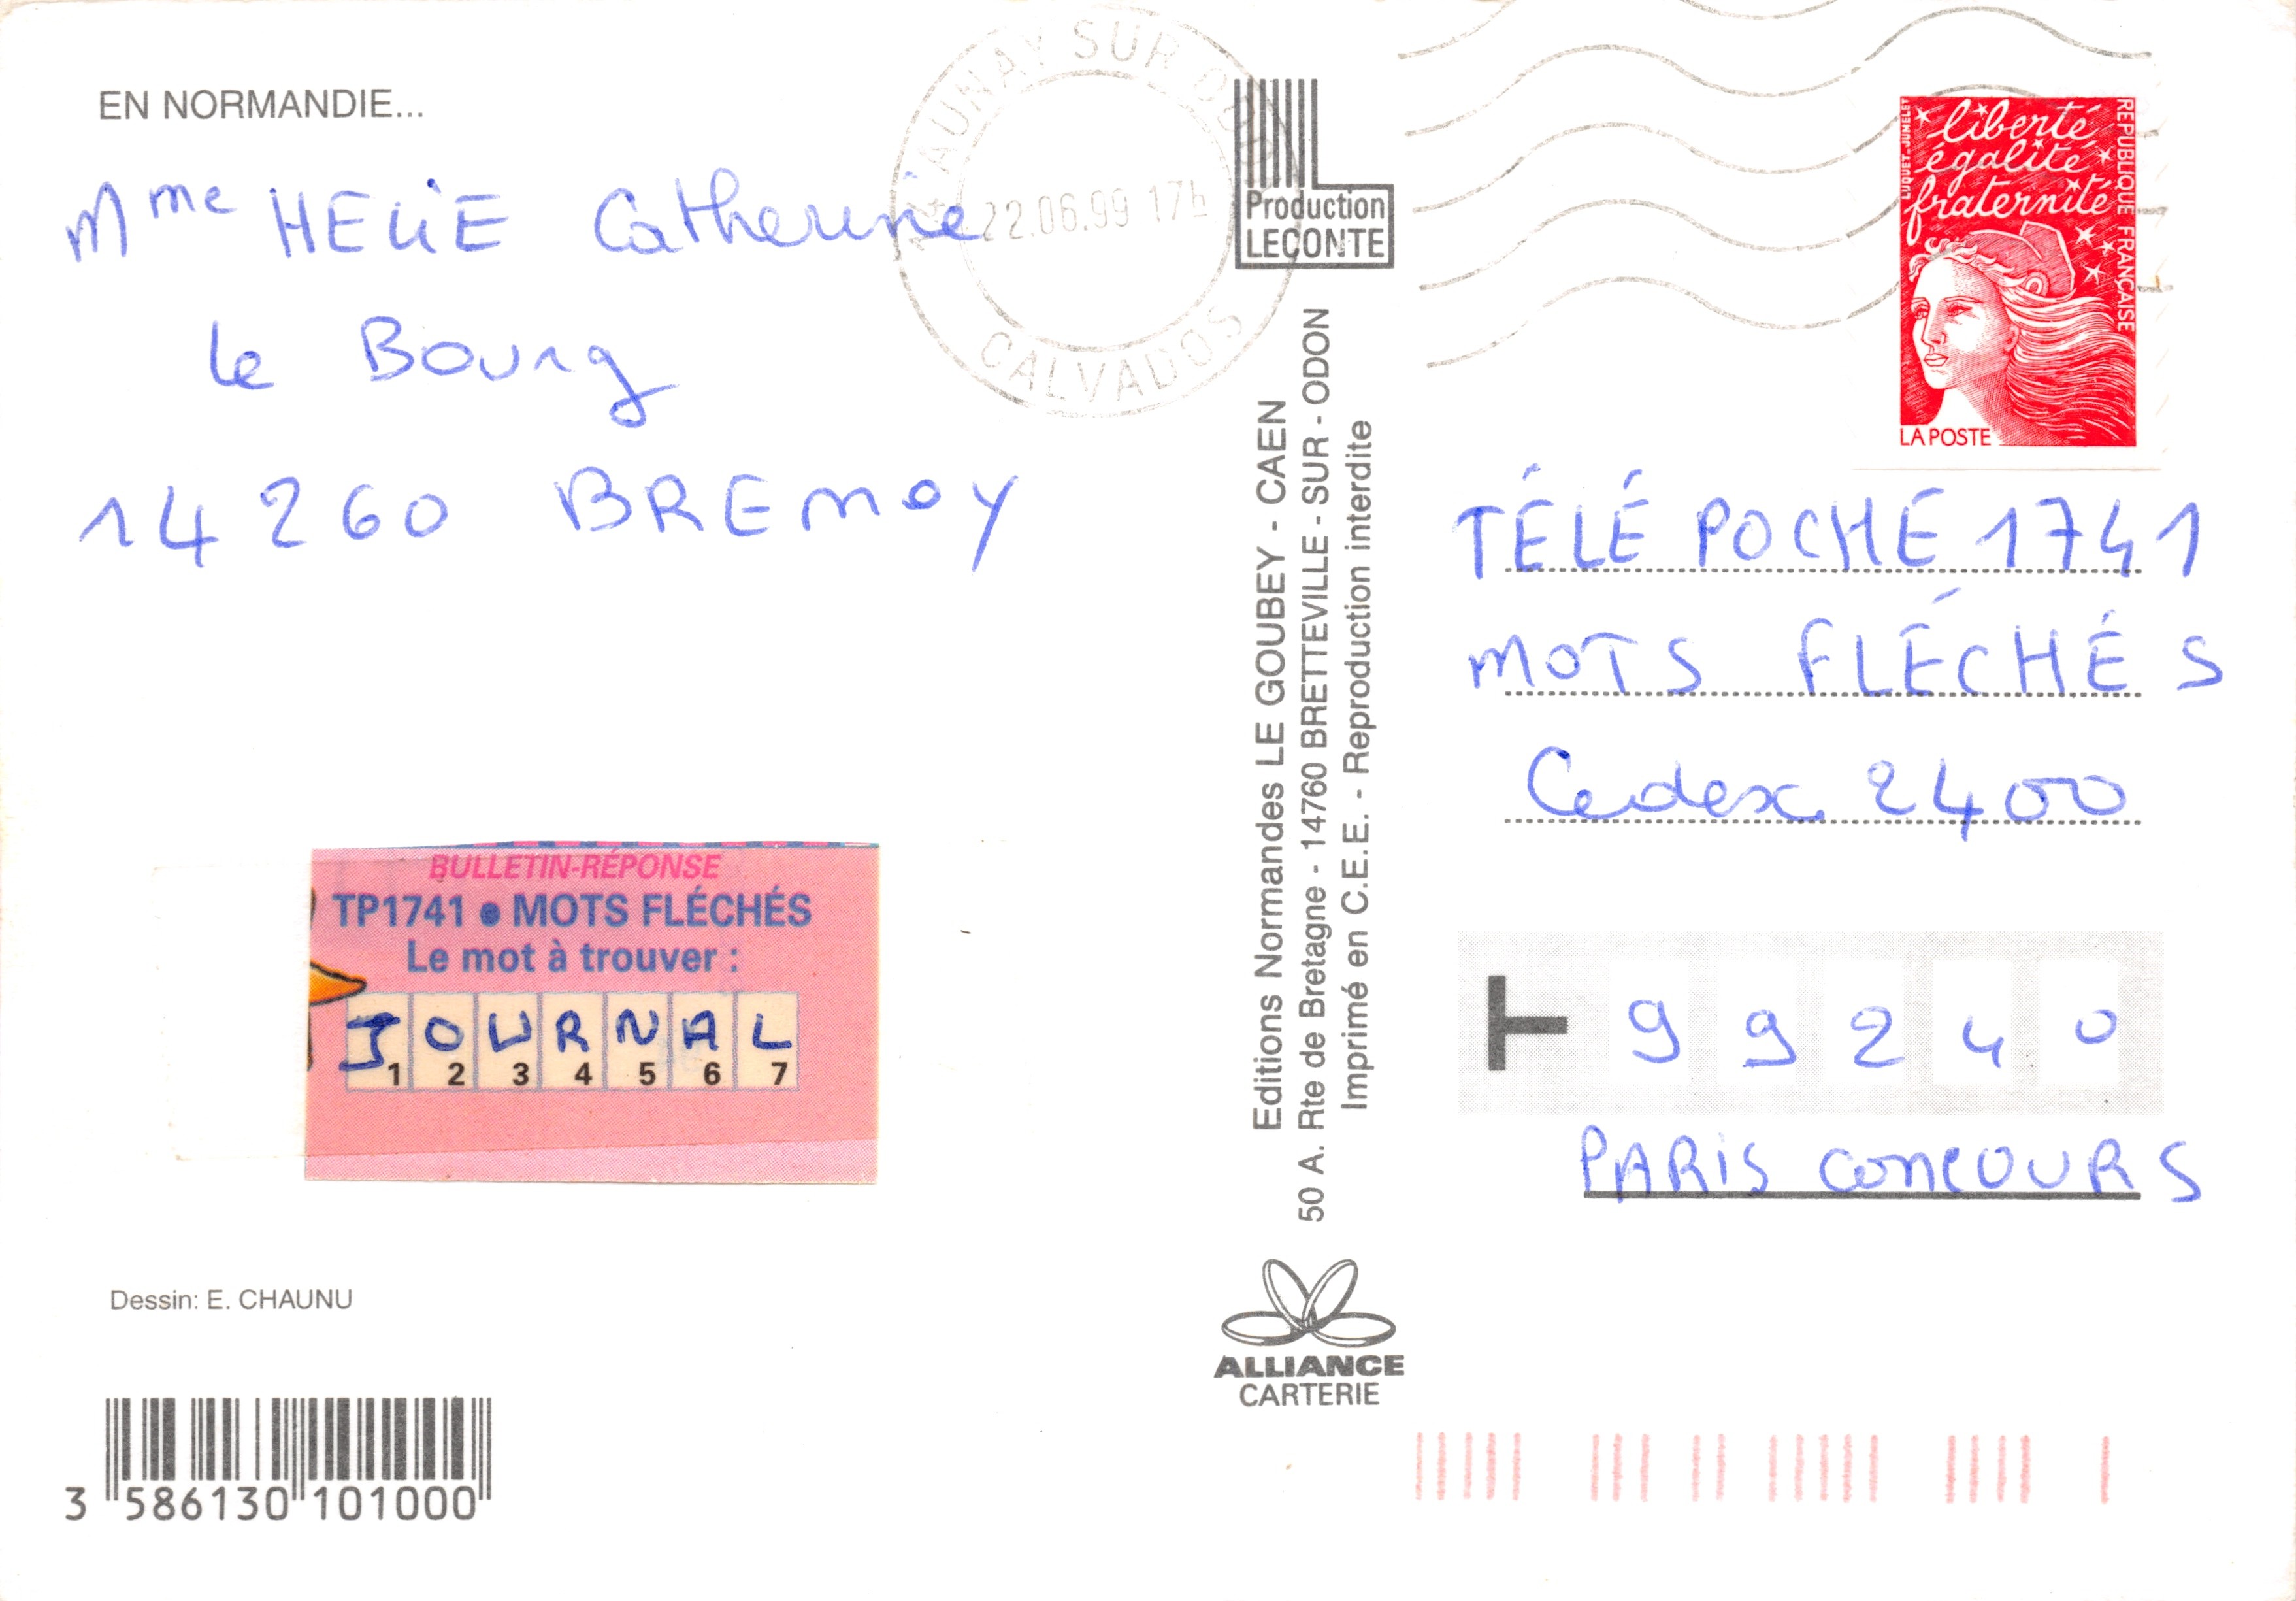 EN NORMANDIE...
Mme HELIE Catherine
le Bourg
14260 BREMOY
BULLETIN-RÉPONSE
TP1741 ● MOTS FLÉCHÉS
Le mot à trouver :
JOURNAL
1 2 3 4 5 6 7
Dessin: E. CHAUNU
3 586130 101000
AUNAY SUR ODON
22.06.99 17h
CALVADOS
Production
LECONTE
Editions Normandes LE GOUBEY - CAEN
50 A. Rte de Bretagne - 14760 BRETTEVILLE - SUR - ODON
Imprimé en C.E.E. - Reproduction interdite
ALLIANCE
CARTERIE
liberté
égalité
fraternité
REPUBLIQUE FRANÇAISE
LUQUET-JUMELET
LA POSTE
TÉLÉ POCHE 1741
MOTS FLÉCHÉS
Cedex 2400
99240
PARIS CONCOURS